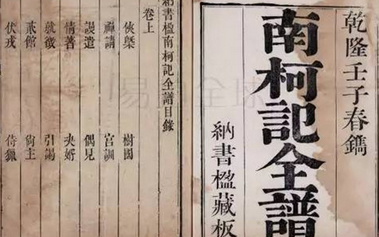 乾隆壬子春鐫
南柯記全譜
納書楹藏板
納書楹南柯記全譜目錄
卷上
俠槩 樹國
禪請 宮訓
謾遣 偶見
情著 決婿
就徵 引謁
貳館 尚主
伏戎 侍獵